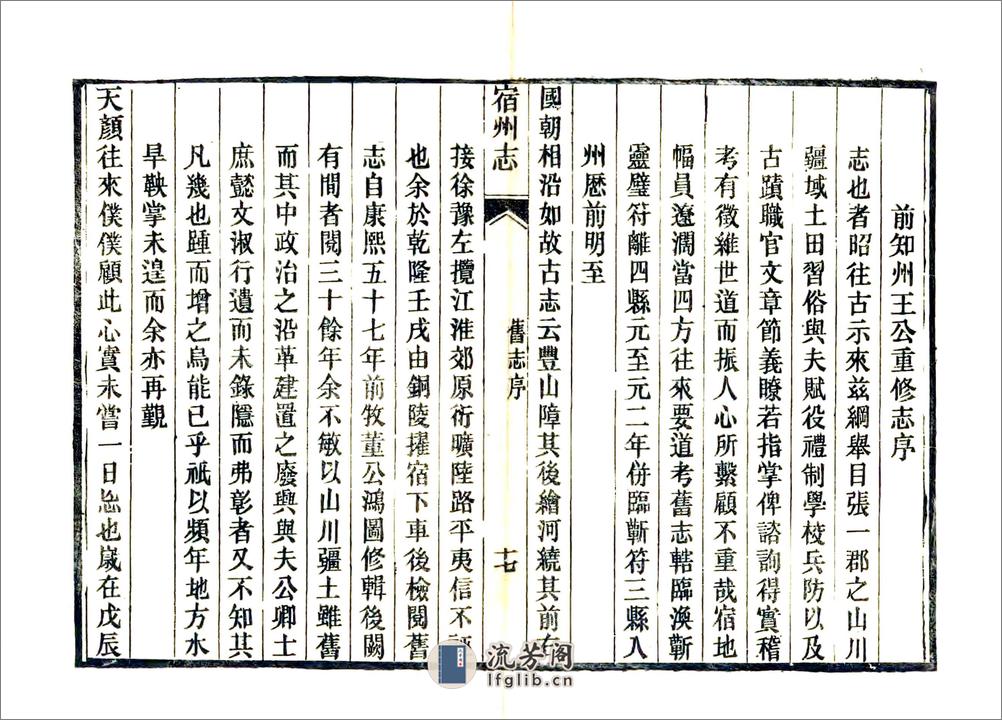 前知州王公重修志序
志也者昭往古示來茲綱舉目張一郡之山川
疆域土田習俗與夫賦役禮制學校兵防以及
古蹟職官文章節義瞭若指掌俾諮詢得實稽
考有徵維世道而振人心所繫顧不重哉宿地
幅員遼濶當四方往來要道考舊志轄臨渙蘄
靈璧符離四縣元至元二年併臨蘄符三縣入
州厯前明至
國朝相沿如故古志云豐山障其後繪河繞其前右
宿州志
舊志序
十七
接徐豫左攬江淮郊原衍曠陸路平夷信不誣
也余於乾隆壬戌由銅陵擢宿下車後檢閱舊
志自康熙五十七年前牧董公鴻圖修輯後闕
有間者閱三十餘年余不敏以山川疆土雖舊
而其中政治之沿革建置之廢興與夫公卿士
庶懿文淑行遺而未錄隱而弗彰者又不知其
凡幾也踵而增之烏能已乎祇以頻年地方水
旱鞅掌未遑而余亦再覲
天顏往來僕僕顧此心實未嘗一日忘也歲在戊辰
流芳阁
lfglib.cn